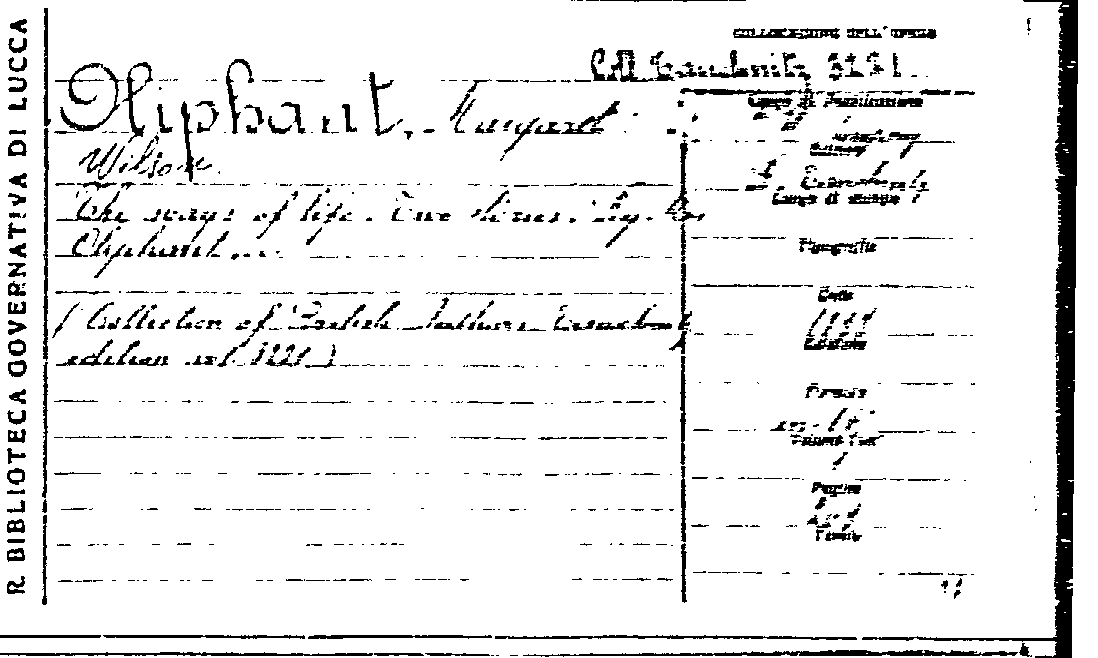 R. BIBLIOTECA GOVERNATIVA DI LUCCA
COLLOCAZIONE DELL'OPERA
Coll. Tauchnitz 3221
Oliphant, Margaret
Wilson.
The ways of life. Two stories. By Mrs
Oliphant....
(Collection of British Authors Tauchnitz
edition vol. 3221.)
Luogo di Pubblicazione
Editore
B. Tauchnitz
Luogo di stampa
Tipografia
Data
Edizione
Formato
in-16°
Volume
Pagine
Tavole